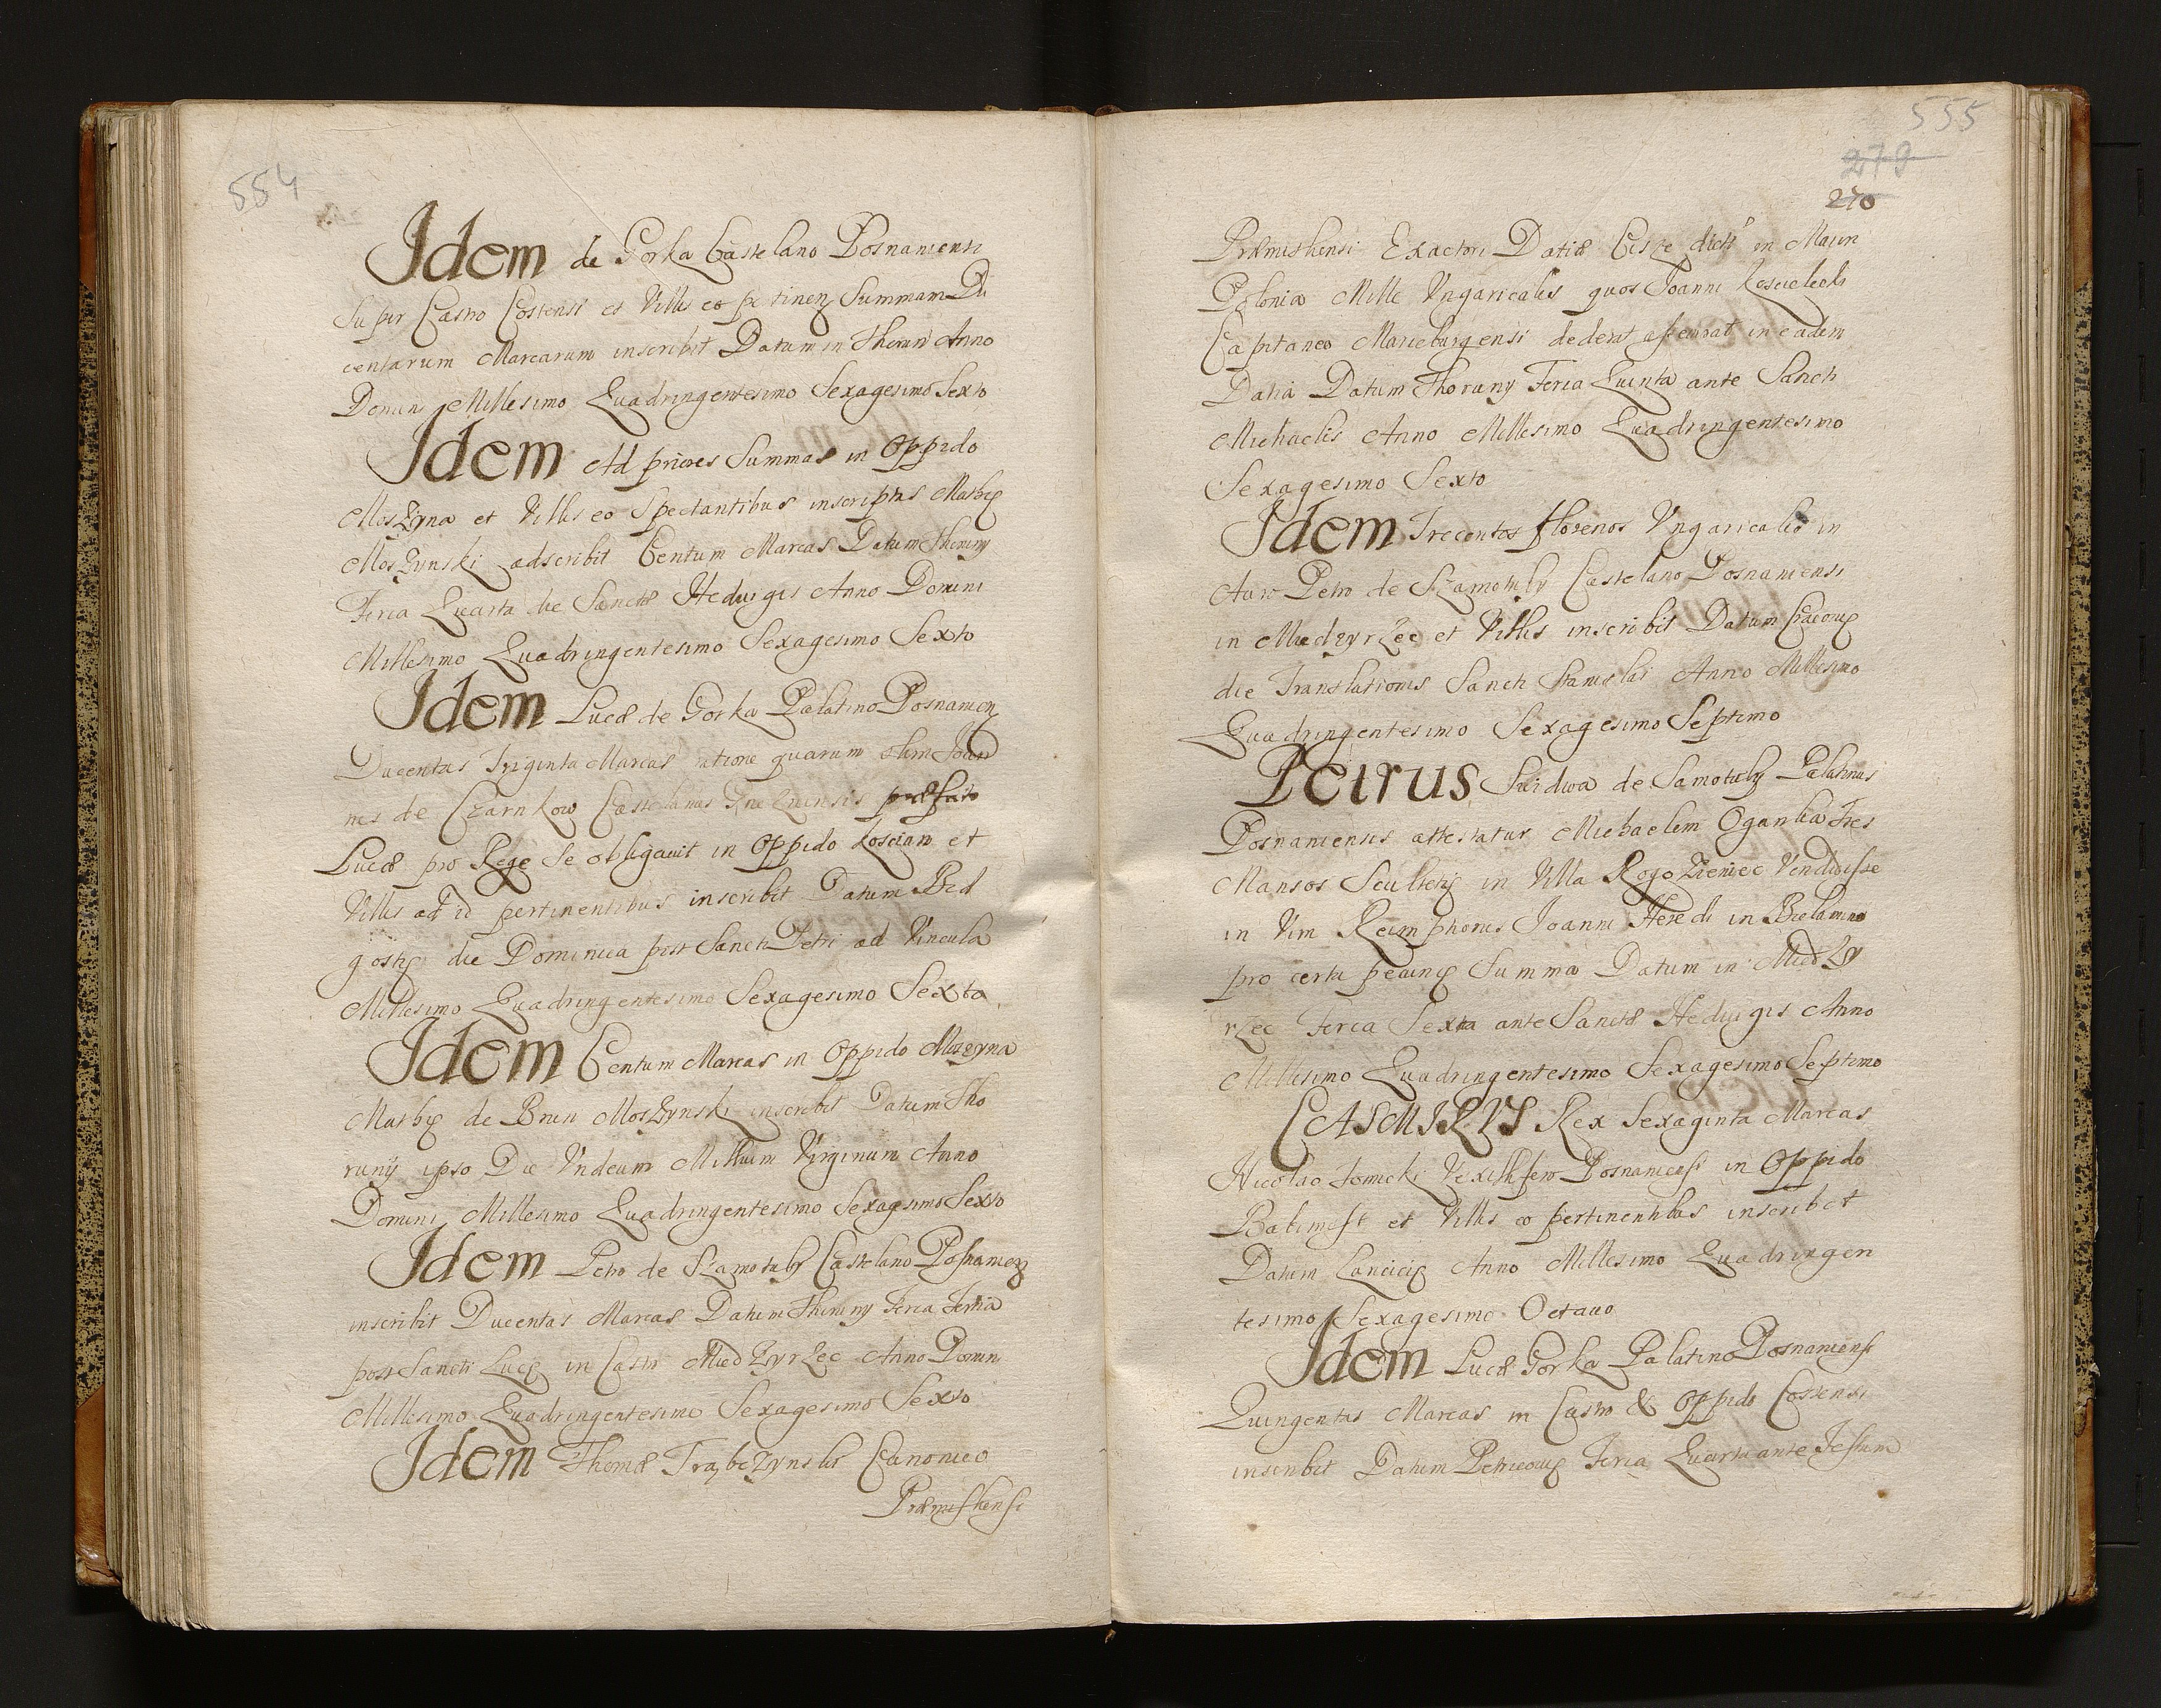 554
Idem de Gorka Castelano Posnaniensi
Super Castro Costensi et Villis eo pertinen Summam Du
centarum Marcarum inscribit Datum in Thorun Anno
Domini Millesimo Quadringentesimo Sexagesimo Sexto
Idem Ad priores Summas in Oppido
Moszyna et Villis eo Spectantibus inscriptas Mathię
Moszynski adscribit Centum Marcas Datum Thoruny
Feria Quarta die Sanctæ Heduigis Anno Domini
Millesimo Quadringentesimo Sexagesimo Sexto
Idem Lucæ de Gorka Palatino Posnanien
Ducentas Triginta Marcas ratione quarum olim Joan
nes de Czarnkow Castelanus Gneznensis præfato
Lucæ pro Rege se obligauit in Oppido Koscian et
Villis ad id pertinentibus inscribit Datum Bid
gostię die Dominica post Sancti Petri ad Vincula
Millesimo Quadringentesimo Sexagesimo Sexto
Idem Centum Marcas in Oppido Moszyna
Mathię de Bnin Moszynski inscribit Datum Tho
runÿ ipso Die Vndecim Millium Virginum Anno
Domini Millesimo Quadringentesimo Sexagesimo Sexto
Idem Petro de Szamotuly Castelano Posnanien
inscribit Ducentas Marcas Datum Thoruny Feria Tertia
post Sancti Lucę in Castro Miedzyrzec Anno Domini
Millesimo Quadringentesimo Sexagesimo Sexto
Idem Thomæ Trąbczynski Canonico
Præmisliensi
555
279
270
Præmisliensi Exactori Datiæ Ciszę dictæ in Maiori
Polonia Mille Vngaricales quos Joanni Koscielecki
Capitaneo Marieburgensi dederat assecurat in eadem
Datia Datum Thoruny Feria Quinta ante Sancti
Michaelis Anno Millesimo Quadringentesimo
Sexagesimo Sexto
Idem Trecentos florenos Vngaricales in
Auro Petro de Szamotuly Castelano Posnaniensi
in Miedzyrzec et Villis inscribit Datum Cracouię
die Translationis Sancti Stanislai Anno Millesimo
Quadringentesimo Sexagesimo Septimo
Petrus Swidwa de Samotuly Palatinus
Posnaniensis attestatur Michaelem Oganka Tres
Mansos Scultetię in Villa Rogoziniec Vendidisse
in Vim Reemptionis Joanni Heredi in
pro certa pecunię Summa Datum in Miedzy
rzec Feria Sexta ante Sanctæ Heduigis Anno
Millesimo Quadringentesimo Sexagesimo Septimo
CASMIRVS Rex Sexaginta Marcas
Nicolao Tomicki Vexillifero Posnaniensi in Oppido
Babimost et Villis eo pertinentibus inscribet
Datum Lancicię Anno Millesimo Quadringen
tesimo Sexagesimo Octauo
Idem Lucæ Gorka Palatino Posnaniensi
Quingentas Marcas in Castro & Oppido Costensi
inscribit Datum Petricouię Feria Quarta ante Festum